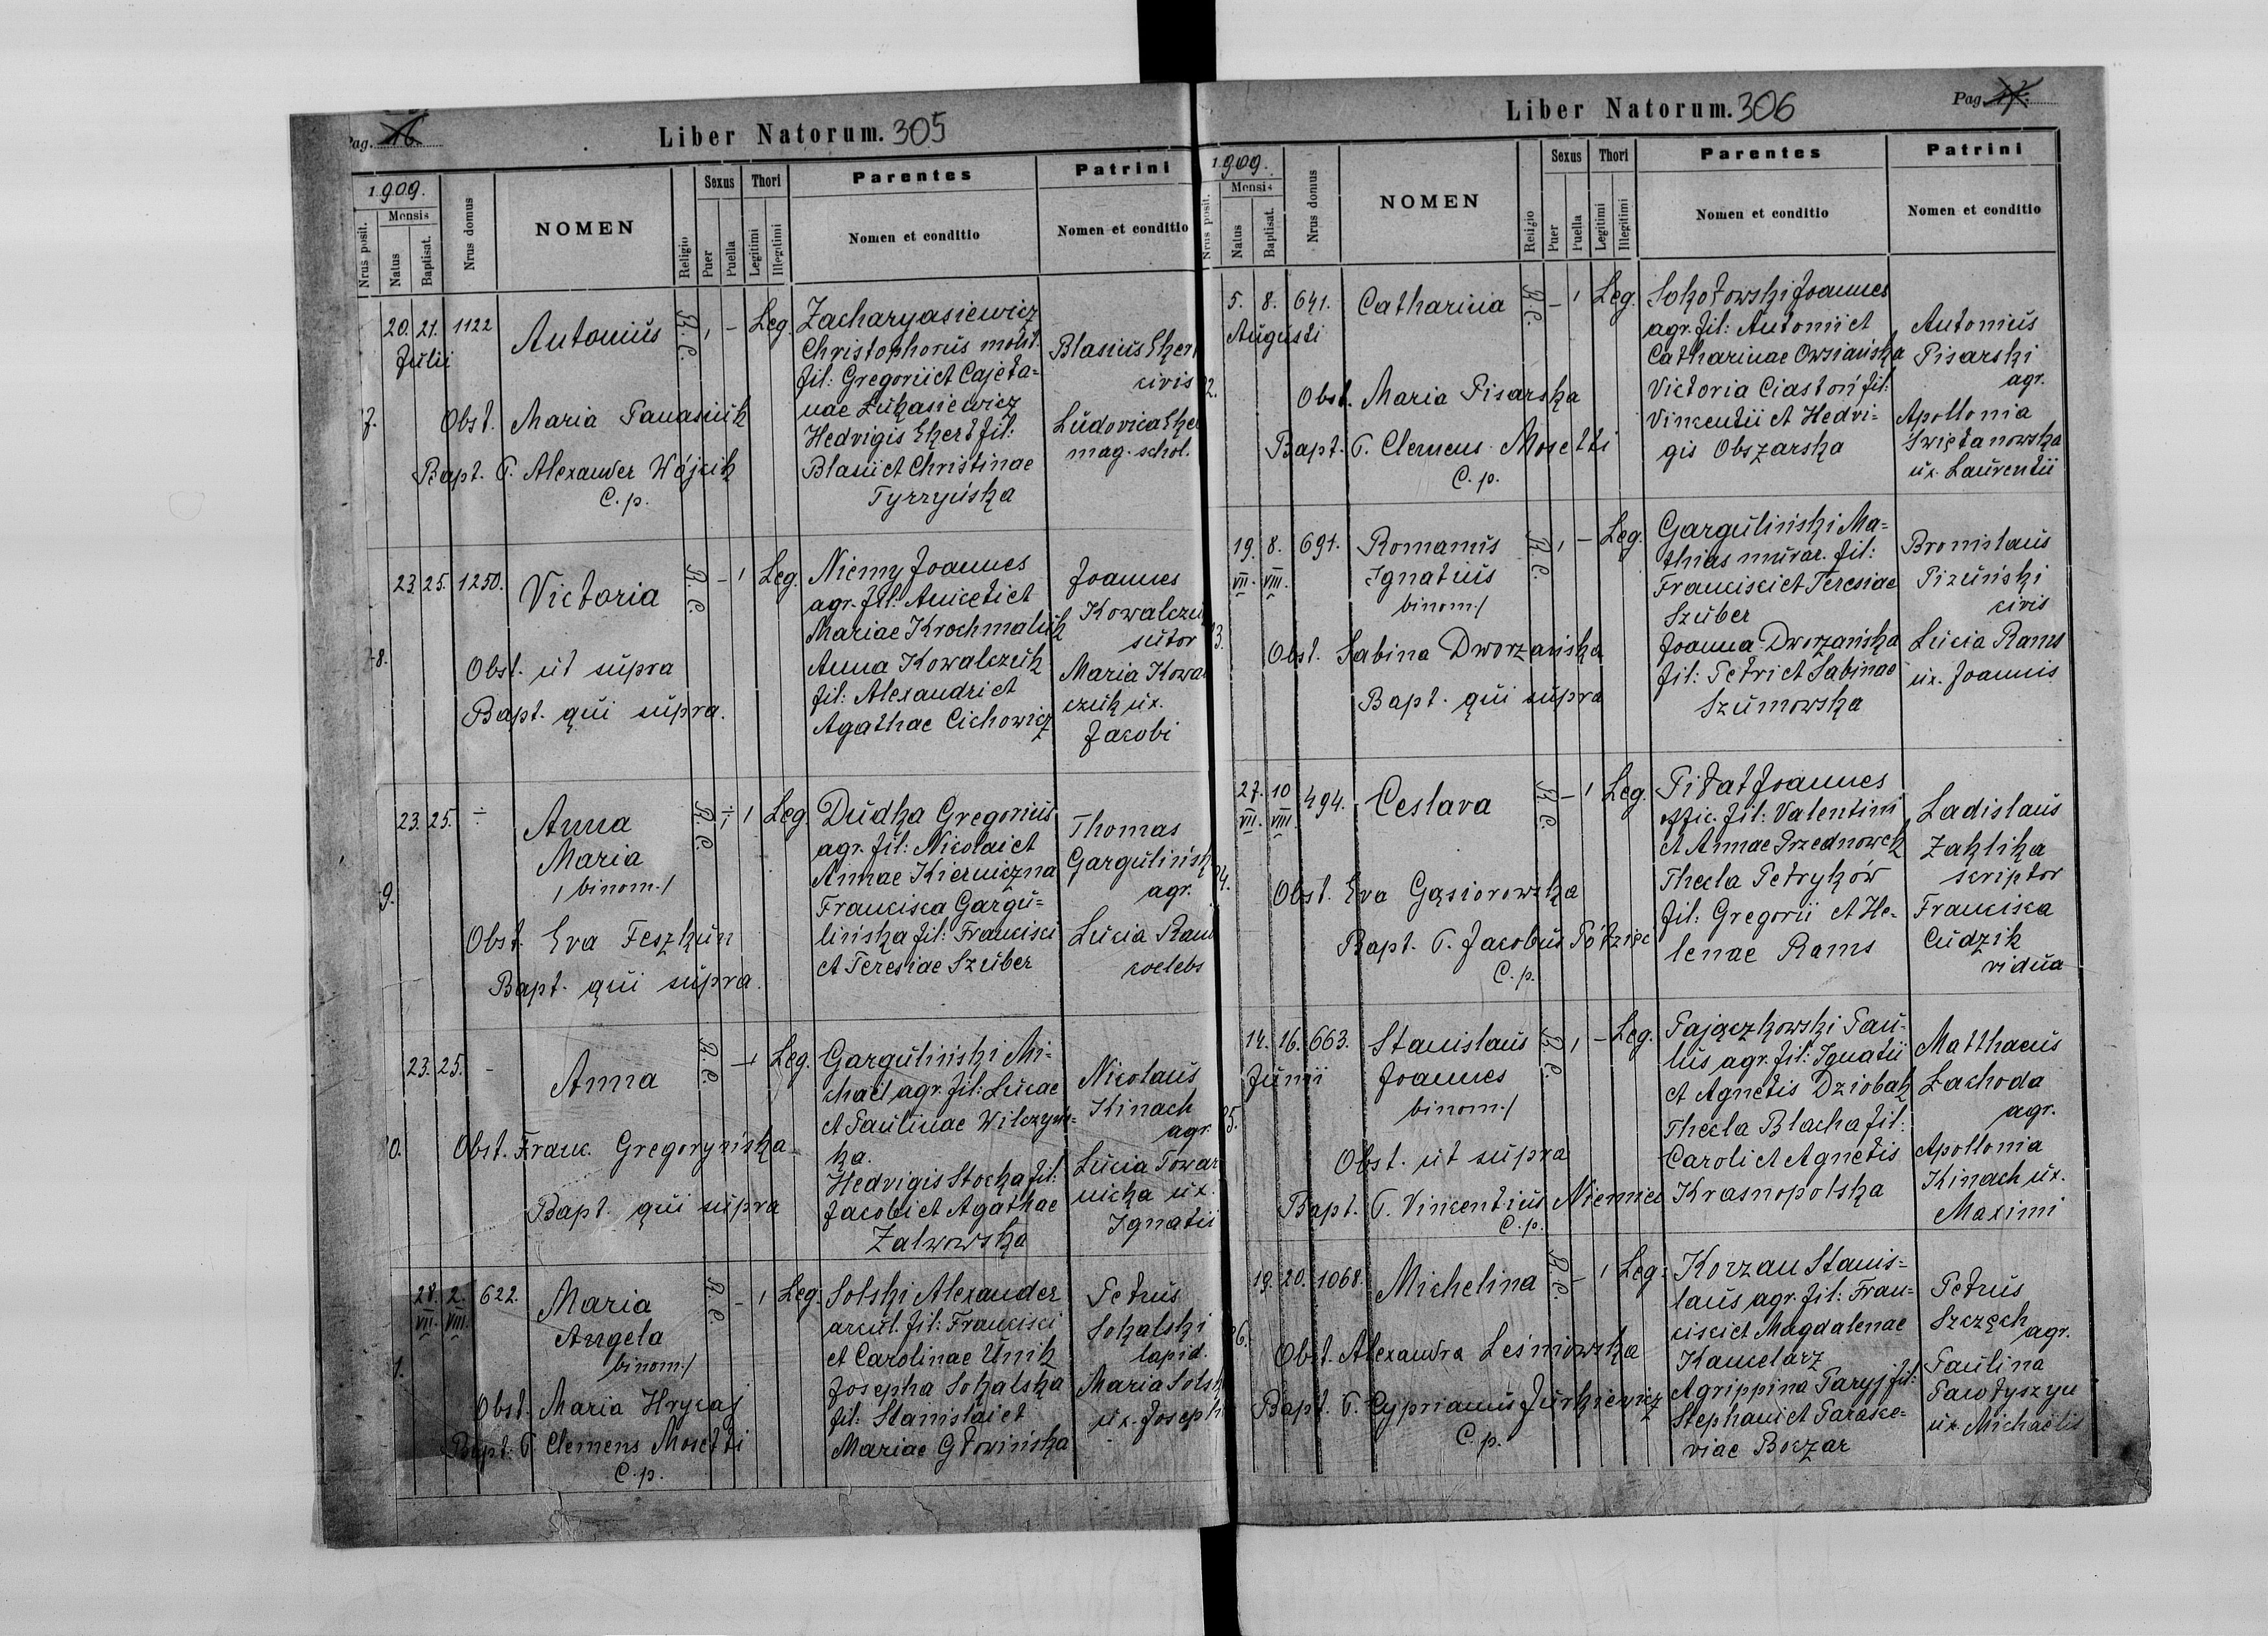 Pag. 16
Liber Natorum. 305
1909.
Nrus posit.
Mensis
Natus
Baptisat.
Nrus domus
NOMEN
Religio
Sexus
Puer
Puella
Thori
Legitimi
Illegitimi
Parentes
Nomen et conditio
Patrini
Nomen et conditio
20. 21. 1122 Antonius R. C. 1 - Leg.
Julii
7.
Obst. Maria Panasiuk
Bapt. P. Alexander Wójcik
C. p.
Zacharyasiewicz
Christophorus molit.
fil: Gregorii et Cajeta=
nae Łukasiewicz
Hedvigis Ekert fil:
Blasii et Christinae
Tyrzyńska
Blasius Eker
civis
Ludovica Eke
mag. schol.
23. 25. 1250. Victoria R. C. - 1 Leg.
8.
Obst. ut supra
Bapt. qui supra.
Niemy Joannes
agr. fil: Aniceti et
Mariae Krochmaluk
Anna Kowalczuk
fil: Alexandri et
Agathae Cichowicz
Joannes
Kowalczu
sutor
Maria Kowal
czuk ux.
Jacobi
23. 25. ÷ Anna R. C. ÷ 1 Leg.
Maria
/ binom. /
9.
Obst. Eva Feszkun
Bapt. qui supra.
Dudka Gregorius
agr. fil: Nicolai et
Annae Kierniczna
Francisca Gargu=
lińska fil: Francisci
et Teresiae Szuber
Thomas
Gargulińsk
agr.
Lucia Ram
coelebs
23. 25. - Anna R. C. - 1 Leg.
0.
Obst. Franc. Gregoryńska
Bapt. qui supra
Garguliński Mi=
chael agr. fil: Lucae
et Paulinae Wilczyńs=
ka.
Hedvigis Stocka fil:
Jacobi et Agathae
Zalwowska
Nicolaus
Kinach
agr.
Lucia Towar
nicka ux.
Ignatii
28. 2. 622. Maria R. C. - 1 Leg.
VII. VIII.
Angela
binom. /
1.
Obst. Maria Hrycaj
Bapt. P. Clemens Mosetti
C. p.
Solski Alexander
arcul. fil: Francisci
et Carolinae Unik
Josepha Sokalska
fil: Stanislai et
Mariae Głowińska
Petrus
Sokalski
lapid.
Maria Solsk
ux. Josephi
Liber Natorum. 306
Pag. 17.
1909.
Nrus posit.
Mensis
Natus
Baptisat.
Nrus domus
NOMEN
Religio
Sexus
Puer
Puella
Thori
Legitimi
Illegitimi
Parentes
Nomen et conditio
Patrini
Nomen et conditio
5. 8. 641. Catharina R. C. - 1 Leg.
Augusti
2.
Obst. Maria Pisarska
Bapt. P. Clemens Mosetti
C. p.
Sokołowski Joannes
agr. fil: Antonii et
Catharinae Owsiańska
Victoria Ciastoń fil:
Vincentii et Hedvi=
gis Obszarska
Antonius
Pisarski
agr.
Apollonia
Swiętanowska
ux. Laurentii
19. 8. 691. Romanus R. C. 1 - Leg.
VII. VIII.
Ignatius
binom. /
3.
Obst. Sabina Dworzańska
Bapt. qui supra
Garguliński Ma=
thias murar. fil:
Francisci et Teresiae
Szuber
Joanna Dworzańska
fil: Petri et Sabinae
Szumowska
Bronislaus
Pizuński
civis
Lucia Rams
ux. Joannis
27. 10 494. Ceslava R. C. - 1 Leg.
VII. VIII.
4.
Obst. Eva Gąsiorowska
Bapt. P. Jacobus Półzięć
C. p.
Pidat Joannes
offic. fil: Valentini
et Annae Przednowek
Thecla Petryków
fil: Gregorii et He=
lenae Rams
Ladislaus
Zaklika
scriptor
Francisca
Cudzik
vidua
14. 16. 663. Stanislaus R. C. 1 - Leg.
Junii
Joannes
binom. /
5.
Obst. ut supra
Bapt. P. Vincentius Niemiec
C. p.
Pajączkowski Pau=
lus agr. fil: Ignatii
et Agnetis Dziobak
Thecla Blacha fil:
Caroli et Agnetis
Krasnopolska
Matthaeus
Łachoda
agr.
Apollonia
Kinach ux.
Maximi
19. 20. 1068. Michelina R. C. - 1 Leg.
6.
Obst. Alexandra Leśniowska
Bapt. P. Cyprianus Jurkiewicz
C. p.
Korzan Stanis=
laus agr. fil: Fran=
cisci et Magdalenae
Kancelarz
Agrippina Paryj fil:
Stephani et Parasce=
viae Boczar
Petrus
Szczęch
agr.
Paulina
Pacołyszyn
ux. Michaelis